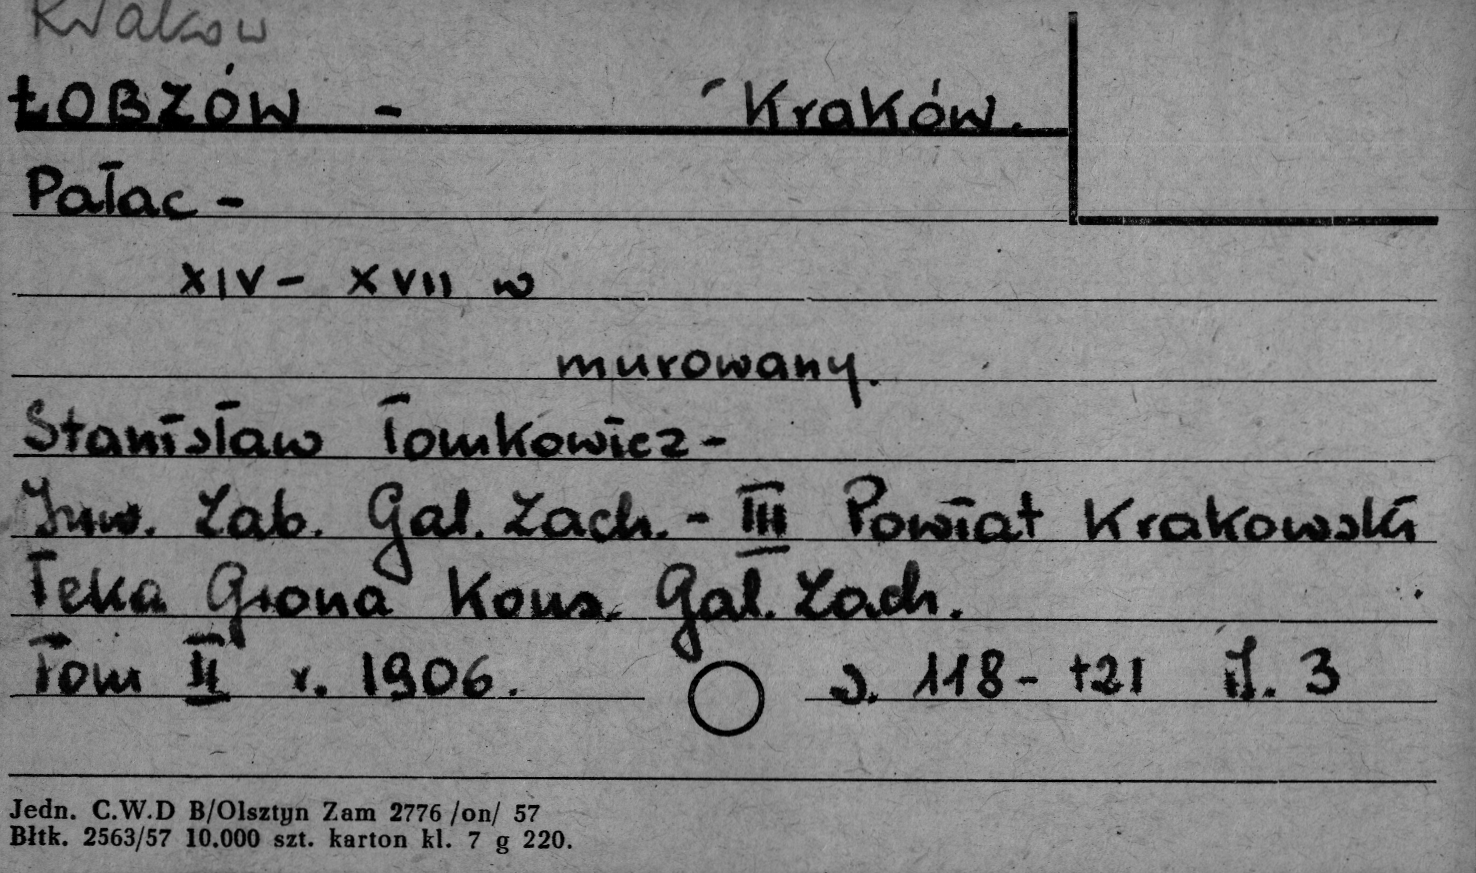 Kraków
ŁOBZÓW - Kraków.
Pałac -
XIV - XVII w
murowany.
Stanisław Tomkowicz -
Inw. Zab. Gal. Zach. - III Powiat Krakowski
Teka Grona Kons. Gal. Zach.
Tom II r. 1906. s. 118 - 121 il. 3
Jedn. C.W.D B/Olsztyn Zam 2776 /on/ 57
Błtk. 2563/57 10.000 szt. karton kl. 7 g 220.